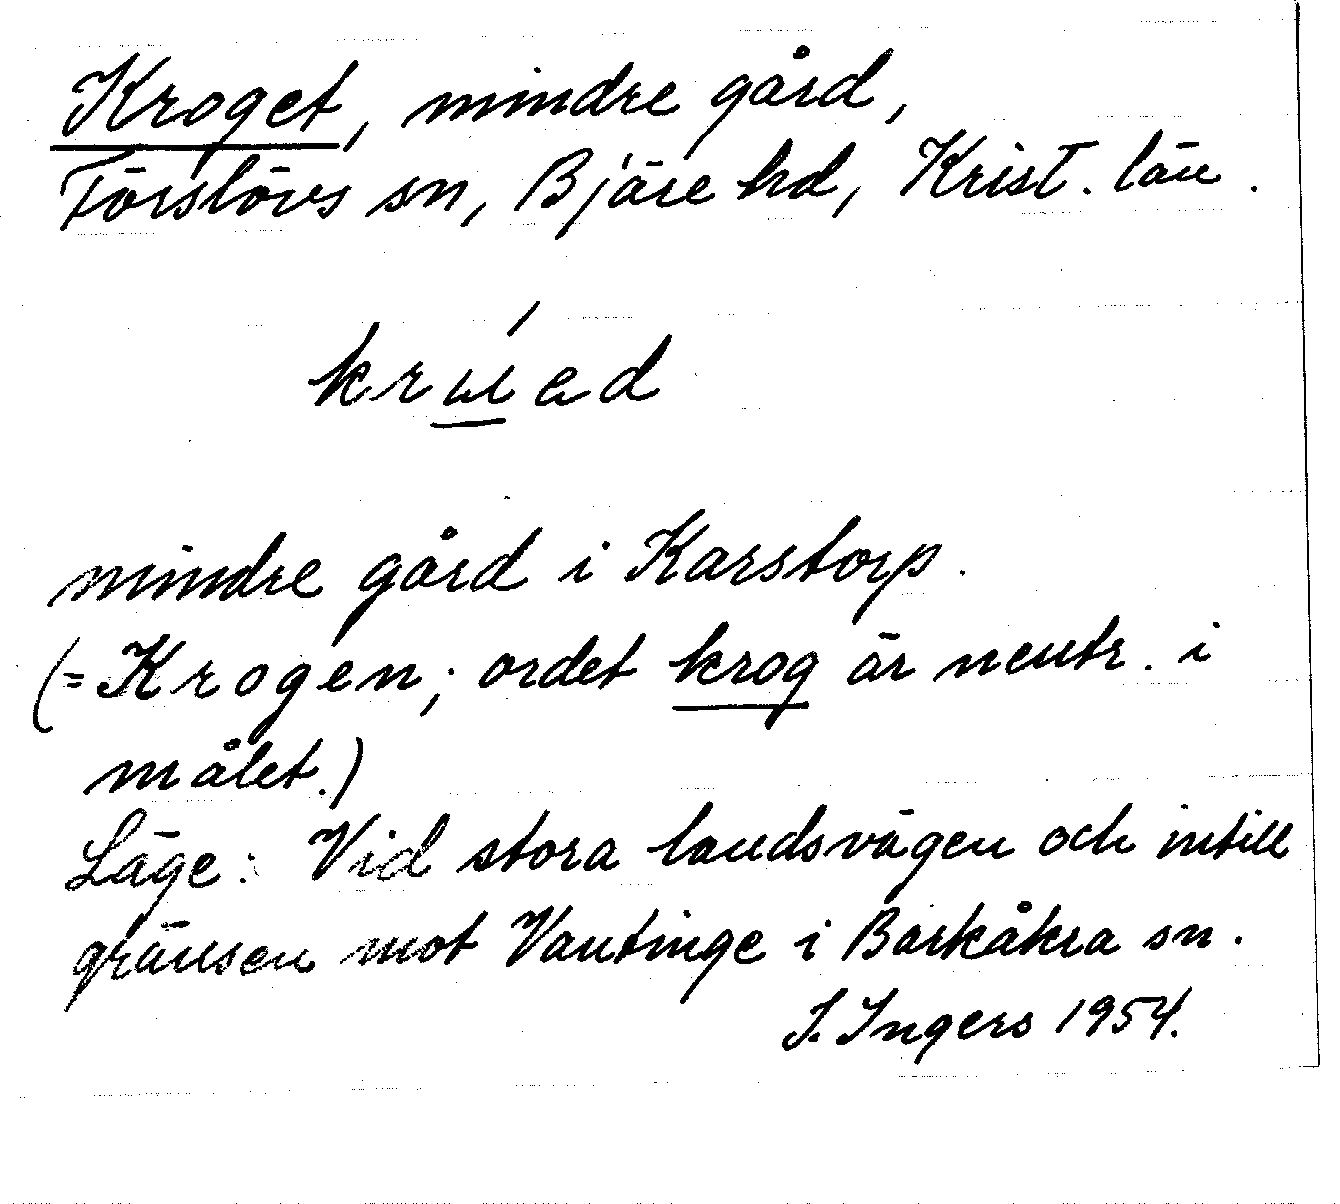 Kroget, mindre gård,
Förslövs sn, Bjäre hd, Krist. län.
mindre gård i Karstorp.
(=Krogen; ordet krog är neutr. i
målet.)
Läge: Vid stora landsvägen och intill
gränsen mot Vantinge i Barkåkra sn.
I. Ingers 1954.